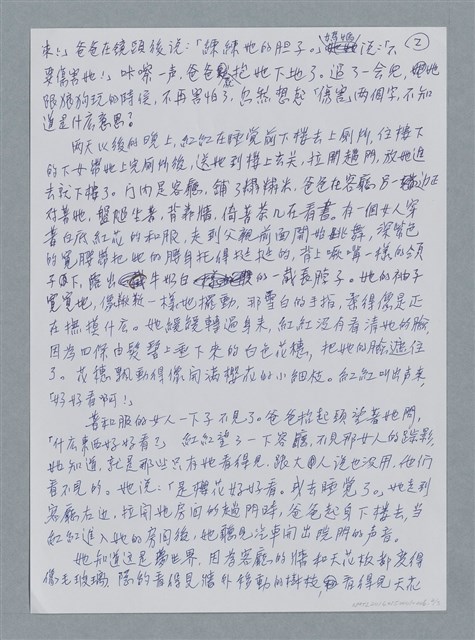 ②
來!」爸爸在镜頭後说:「練練她的胆子。」媽媽说:「不
要傷害她!」咔嚓一声,爸爸抱她下地了。过了一会兒,她
跟狼狗玩的時候,不再害怕了,忽然想起「傷害」两個字,不知
道是什么意思?
两天以後的晚上,紅紅在睡觉前下樓去上厕所,住樓下
的下女带她上完厕所後,送她到樓上玄关,拉開趟門,放她進
去就下樓了。门内是客廳,鋪了榻榻米,爸爸在客廳另一边
对著她,盤腿坐著,背靠牆,倚著茶几在看書。有一個女人穿
著白底紅花的和服,走到父親前面開始跳舞,深紫色
的寬腰帶把她的腰身托得挺挺的,背上噘嘴一樣的領
子下,露出牛奶白的一截長脖子。她的袖子
寬寬地,像鞦韆一樣地擺動,那雪白的手指,柔得像是正
在撫摸什么。她緩緩轉過身来,紅紅没有看清她的臉,
因為四條由髮髻上垂下來的白色花穗,把她的臉遮住
了。花穗飄動得像開滿櫻花的小細枝。紅紅叫出声来,
「好好看啊!」
著和服的女人一下子不見了。爸爸抬起頭望著她問,
「什么東西好好看?」紅紅望了一下客廳,不見那女人的踪影,
她知道,就是那些只有她看得見,跟大人说也没用,他们
看不見的。她说:「是櫻花好好看。我去睡覺了。」她走到
客廳左边,拉開她房间的趟門時,爸爸起身下樓去,当
紅紅進入她的房间後,她聽見汽車開出院門的声音。
她知道这是夢世界,因為客廳的牆和天花板都变得
像毛玻璃,隱约看得見牆外移動的樹枝,看得見天花